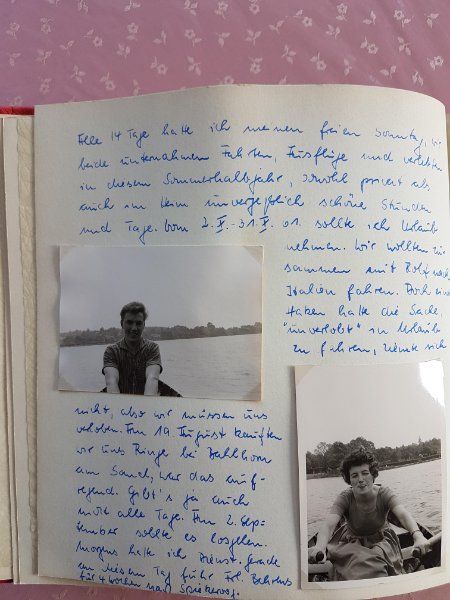 Alle 14 Tage hatte ich meinen freien Sonntag, wir
beide unternahmen Fahrten, Ausflüge und verlebten
in diesem Sommerhalbjahr, sowohl privat als
auch im Heim unvergeßlich schöne Stunden
und Tage. Vom 2. X. - 31. X. 61. sollte ich Urlaub
nehmen. Wir wollten zu-
sammen mit Rolf nach
Italien fahren. Doch einen
Haken hatte die Sache,
"unverlobt" in Urlaub
zu fahren, ziemte sich
nicht, also wir müssen uns
verloben. Am 19. August kauften
wir uns Ringe bei
am Sand, war das auf-
regend. Gibt's ja auch
nicht alle Tage. Am 2. Sep-
tember sollte es losgehen.
Morgens hatte ich Dienst. Gerade
an diesem Tag fuhr Frl. Behrens
für 4 Wochen nach Spiekeroog.